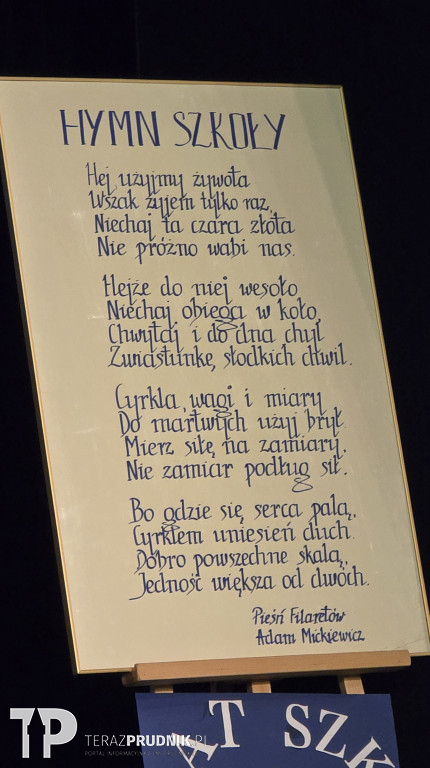 HYMN SZKOŁY
Hej użyjmy żywota
Wszak żyjem tylko raz,
Niechaj ta czara złota
Nie próżno wabi nas.
Hejże do niej wesoło
Niechaj obiega w koło,
Chwytaj i do dna chyl
Zwiastunkę, słodkich chwil.
Cyrkla, wagi i miary
Do martwych użyj brył
Mierz siłę na zamiary,
Nie zamiar podług sił.
Bo gdzie się serca palą,
Cyrklem uniesień duch
Dobro powszechne skalą,
Jedność większa od dwóch.
Pieśń Filaretów
Adam Mickiewicz
AT SZK
TP TERAZPRUDNIK.PL